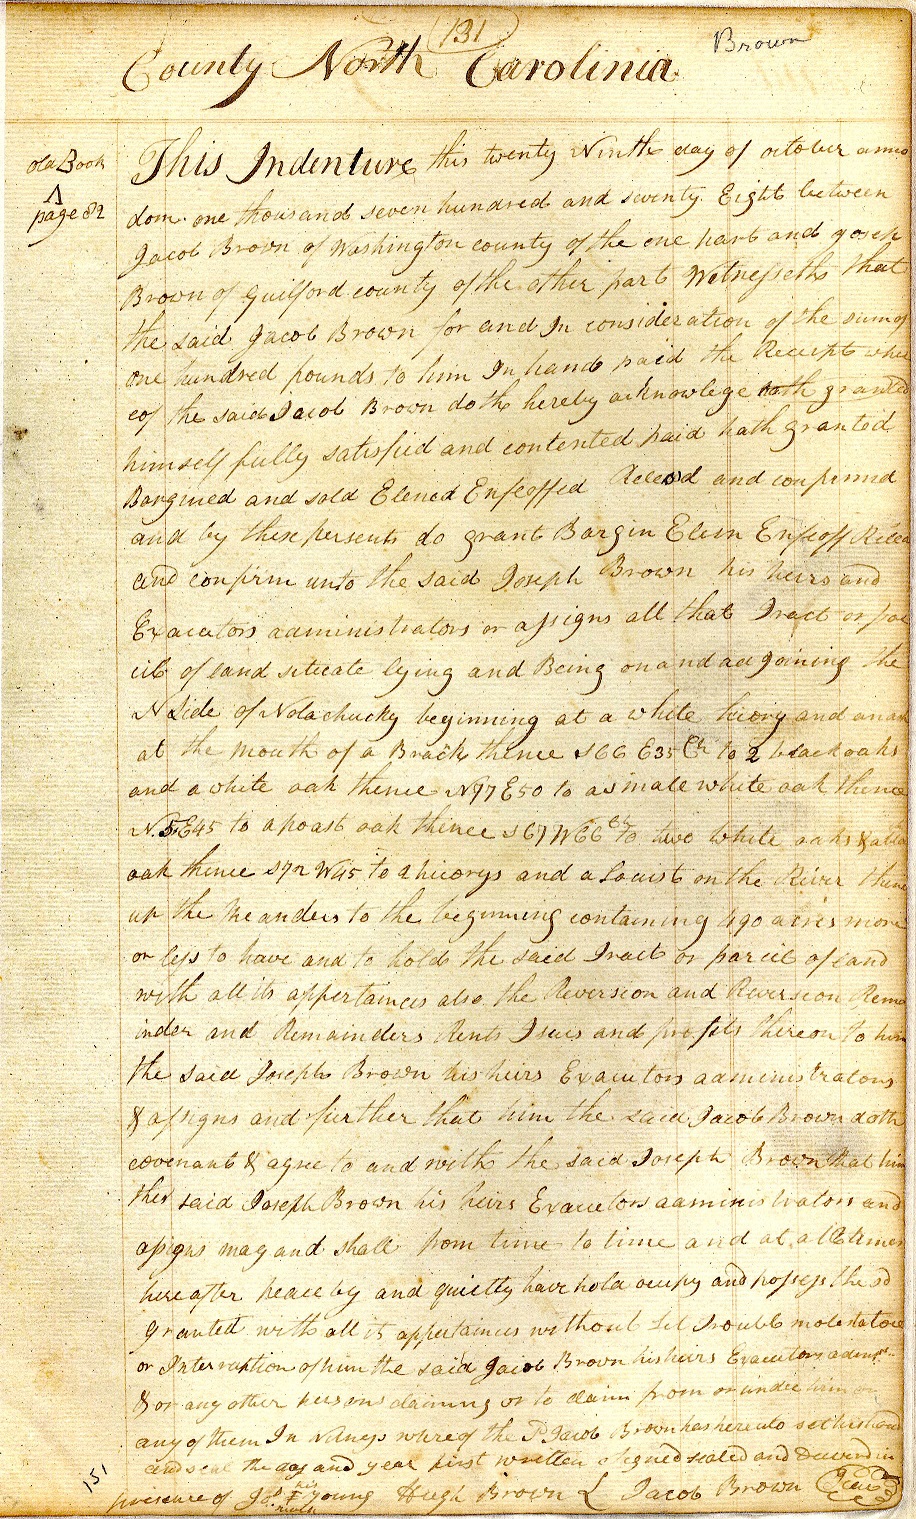 131
Brown
County North Carolina
old Book
page 82
This Indenture this twenty Ninth day of october anno
dom. one thousand seven hundred and seventy Eight between
Jacob Brown of Washington county of the one part and Joseph
Brown of Guilford county of the other part Witnesseth that
the said Jacob Brown for and In consideration of the sum of
one hundred pounds to him In hand paid the Receipt wher
eof the said Jacob Brown doth hereby acknowlege hath granted
himself fully satisfied and contented paid hath granted
Bargined and sold Elened Enfeoffed Relesed and confirmed
and by these persents do grant Bargin Elein Enfeoff Relea
and confirm unto the said Joseph Brown his heirs and
Exacutors administrators or assigns all that Tract or par
cil of land situate lying and Being on and adjoining the
N Side of Nolachucky beginning at a white hicory and an ash
at the mouth of a Branch thence S66 E35 Ch to 2 black oaks
and a white oak thence N77 E50 to a smale white oak thence
N5 E45 to a poast oak thence S67 W66 ch to two white oaks &
oak thence S72 W45 to 2 hicorys and a Locust on the River thence
up the Meanders to the beginning containing 490 acres more
or less to have and to hold the said Tract or parcil of land
with all its appertainces also the Reversion and Reversion Rema
inder and Remainders Rents Isues and profits thereon to him
the said Joseph Brown his heirs Exacutors administrators
& assigns and further that him the said Jacob Brown doth
covenant & agree to and with the said Joseph Brown that him
the said Joseph Brown his heirs Exacutors administrators and
asigns may and shall from time to time and at all times
hereafter peaceby and quietly have hold ocupy and possess the sd
granted with all its appertainces without Let Trouble molestation
or Interruption of him the said Jacob Brown his heirs Exacutors admrs
& or any other persons claiming or to claim from or under him or
any of them In Witness whereof the Sd Jacob Brown has hereunto set his hand
and seal the day and year first written signed sealed and Deliverd in
presence of his mark Young Hugh Brown L Jacob Brown Seal
151